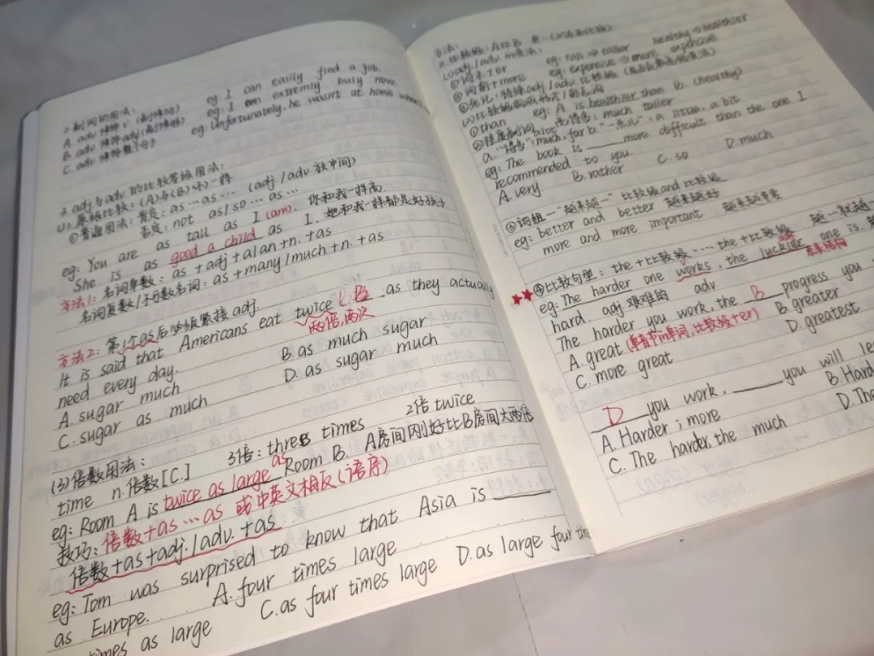 2.副词的用法:
A adv 修饰 v (副修动) eg I can easily find a job.
B adv 修饰 adj (副修形) eg: I am extremely busy now.
C adv 修饰整个句 eg: Unfortunately, he wasn't at home when
3. adj与adv 的比较等级用法:
(1). 原级比较: (A)与(B)一样
①普通用法: 肯定: as … as … (adj/adv 放中间)
否定: not as/so … as …
eg: You are as tall as I (am). 你和我一样高.
She is as good a child as I. 她和我一样都是好孩子
方法1: 名词单数: as + adj + a/an + n. + as
名词复数/不可数名词: as + many/much + n. + as
方法2: 第1个as后必须紧接 adj.
It is said that Americans eat twice B as they actually
两倍,两次
need every day.
A. sugar much B. as much sugar
C. sugar as much D. as sugar much
(3)倍数用法:
time n. 倍数[C.] 3倍: three times 2倍 twice
eg: Room A is twice as large as Room B. A房间刚好比B房间大两倍
技巧: 倍数+as…as 或中英文相反(语序)
倍数+as+adj./adv.+as
eg: Tom was surprised to know that Asia is ____
as Europe. A. four times large
times as large C. as four times large D. as large four
方法:
eg: tall → taller healthy → healthier
②词前+more eg: expensive → more expensive
①than eg: A is healthier than B. (healthy)
a. much, far b. "一点儿": a little, a bit
much taller
eg: The book is ____ more difficult than the one I
recommended to you.
A. very B. rather C. so D. much
③词组 — "越来越…" 比较级 and 比较级
eg: better and better 越来越好
more and more important 越来越重要
★★④比较句型: the + 比较级 …, the + 比较级 越…就越…
eg: The harder one works, the luckier one is.
hard. adj 艰难的 adv
The harder you work, the B progress you
A. great (单音节单词, 比较级+er) B. greater
C. more great D. greatest
D you work, ____ you will
A. Harder; more B. Hard
C. The harder, the much D. The